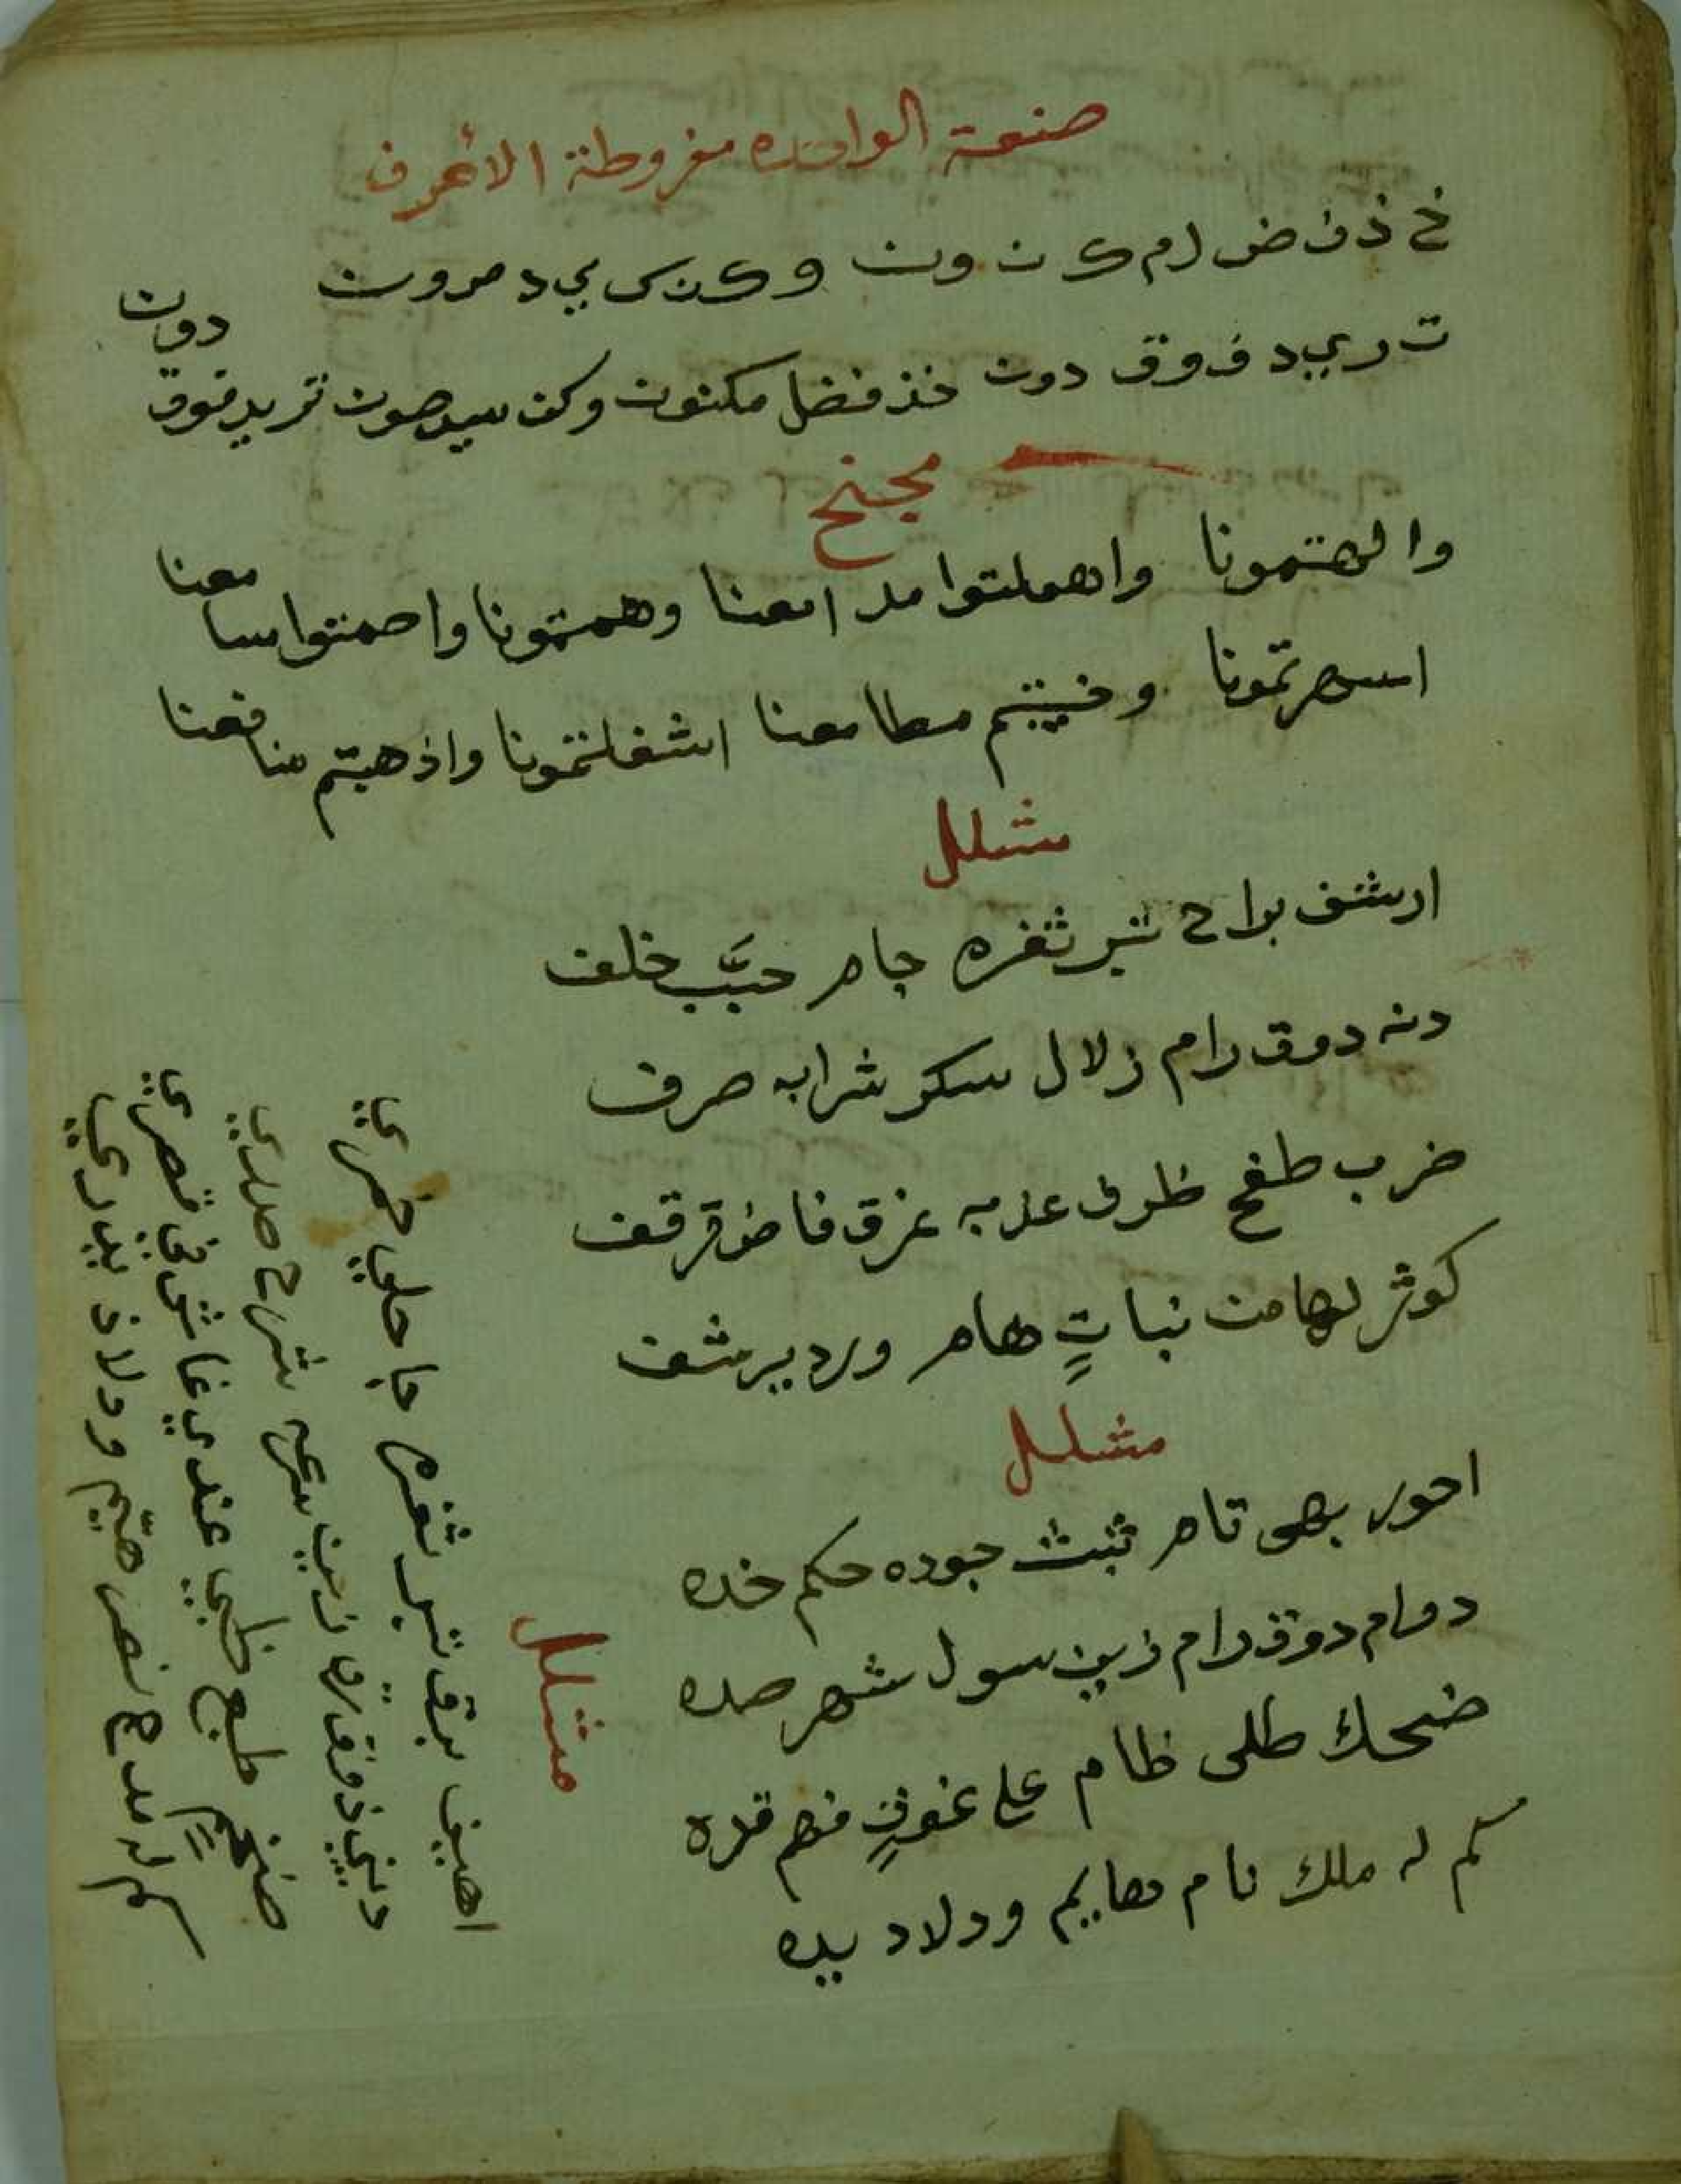 صنعة الواحده مفروطة الأحرف
خ ذ ف ض ل م ك ن و ن و ك ن س ي د ص و ن
ت ر ي د ف و ق دون خذ فضل مكنون وكن سيد صون تريد فوق دون
مجنح
والهتمونا واهملتوا مدامعنا وهمتمونا واصمتوا مسامعنا
اسهرتمونا وخيبتم مطامعنا اشغلتمونا واذهبتم منافعنا
مثلل
ارشف براح ثغره جام حبَّب خلف
دنه دوق رام زلال سكر شرابه صرف
ضرب طفح ظرف عذبه غرق فاض قرقف
كوثر لها من نباتٍ هام ورد يرشف
مثلل
احور بهى تام ثبت جوده حكم خده
دوام دوق رام زين سول شهر صده
ضحك طلى ظام على غفوتٍ فهم قده
كم له ملك نام هايم وولاد يده
مثلل
اهيف برق ثغره جا حلي خمري
ديني ذوق زين شرح صدري
طبع ظبي عندي غاش في قصري
كم له مدح نص هيم وولاف يدري